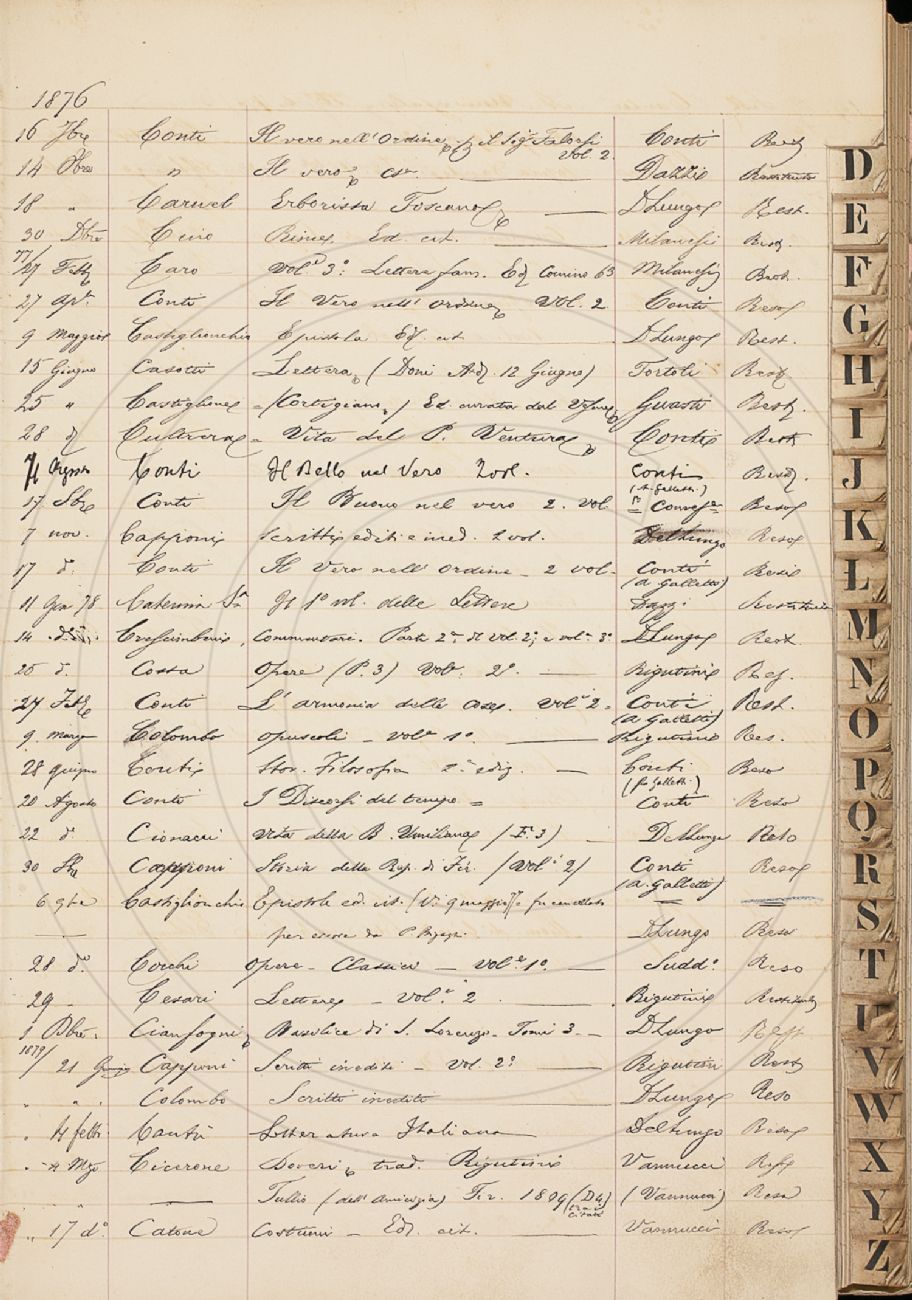 1876
16 7bre Conti Il vero nell'Ordine il Sigr Falorsi Vol. 2. Conti Rest
14 9bre " Il vero Dazzi Restituito
18 " Caruel Erborista Toscano — DLungo Rest.
30 Dbre Cino Rime, Ed. cit. — Milanesi Rest.
77/27 Febb Caro Vol. 3º. Lettere fam. Ed Comino 63 Milanesi Rest.
27 Apr. Conti Il Vero nell'ordine Vol. 2 Conti Reso
9 Maggio Castiglionchio Epistola Ed. cit DLungo Rest.
15 Giugno Casotti Lettera, (Doni Ad. 12 Giugno) Tortoli Rest
25 " Castiglione (Cortigiano) Ed. curata dal Guasti Rest.
28 d Cultrera Vita del P. Ventura Conti Rest
Agosto Conti Il Bello nel Vero 2 vol. Conti Rest.
(A. Galletti)
17 Conti Il Buono nel vero 2. vol Reso
7 nov. Capponi Scritti editi e ined. 2 vol. DelLungo Reso
17 d. Conti Il Vero nell'Ordine - 2 vol. Conti Reso
(A. Galletti)
11 Gen 78. Caterina Sa Il 1º vol. delle Lettere Dazzi Restituito
14 Crescimbeni, Commentari. Parte 2a. del vol. 2º, e vol. 3º DLungo Rest.
25 d. Costa Opere (P. 3) Vol. 2º. — Rigutini Res.
27 Febb Conti L'armonia delle cose. Vol. 2 - Conti Rest.
(A. Galletti)
9. marzo Colombo Opuscoli - vol. 1º. — Rigutini Res.
28 giugno Conti Stor. Filosofia 2a ediz. — Conti Reso
(per Galletti)
20 Agosto Conti I Discorsi del tempo = Conti Reso
22 d. Cionacci Vita della B. Umiliana (F. 3) DelLungo Reso
30 Capponi Storia della Rep. di Fir. (Vol. 2) Conti Reso
(A. Galletti)
6 9bre Castiglionchio Epistole ed. cit. (Vi 9 maggio 77 e fu cancellato
— per errore da P. DLungo Reso
28 do Cocchi Opere - Classici - Vol. 1º. — Sudd. Reso
29 - Cesari Lettere - Vol. 2 — Rigutini
1 Dbre. Cianfogni Basilica di S. Lorenzo - Tomi 3 - DLungo
1879/
21 Capponi Scritti inediti - Vol. 2º — Rigutini Rest
" " Colombo Scritti inediti — DLungo Reso
" 4 febb Cantù Letteratura Italiana — DelLungo Reso
" 4 Mzo Cicerone Doveri, trad. Rigutini Vannucci
" — Tullio (dell'Amicizia) Fir. 1809 (Vannucci) Reso
citato
" 17 do. Catone Costumi - Ed. cit. — Vannucci Reso
D
E
F
G
H
I
J
K
L
M
N
O
P
Q
R
S
T
U
V
W
X
Y
Z